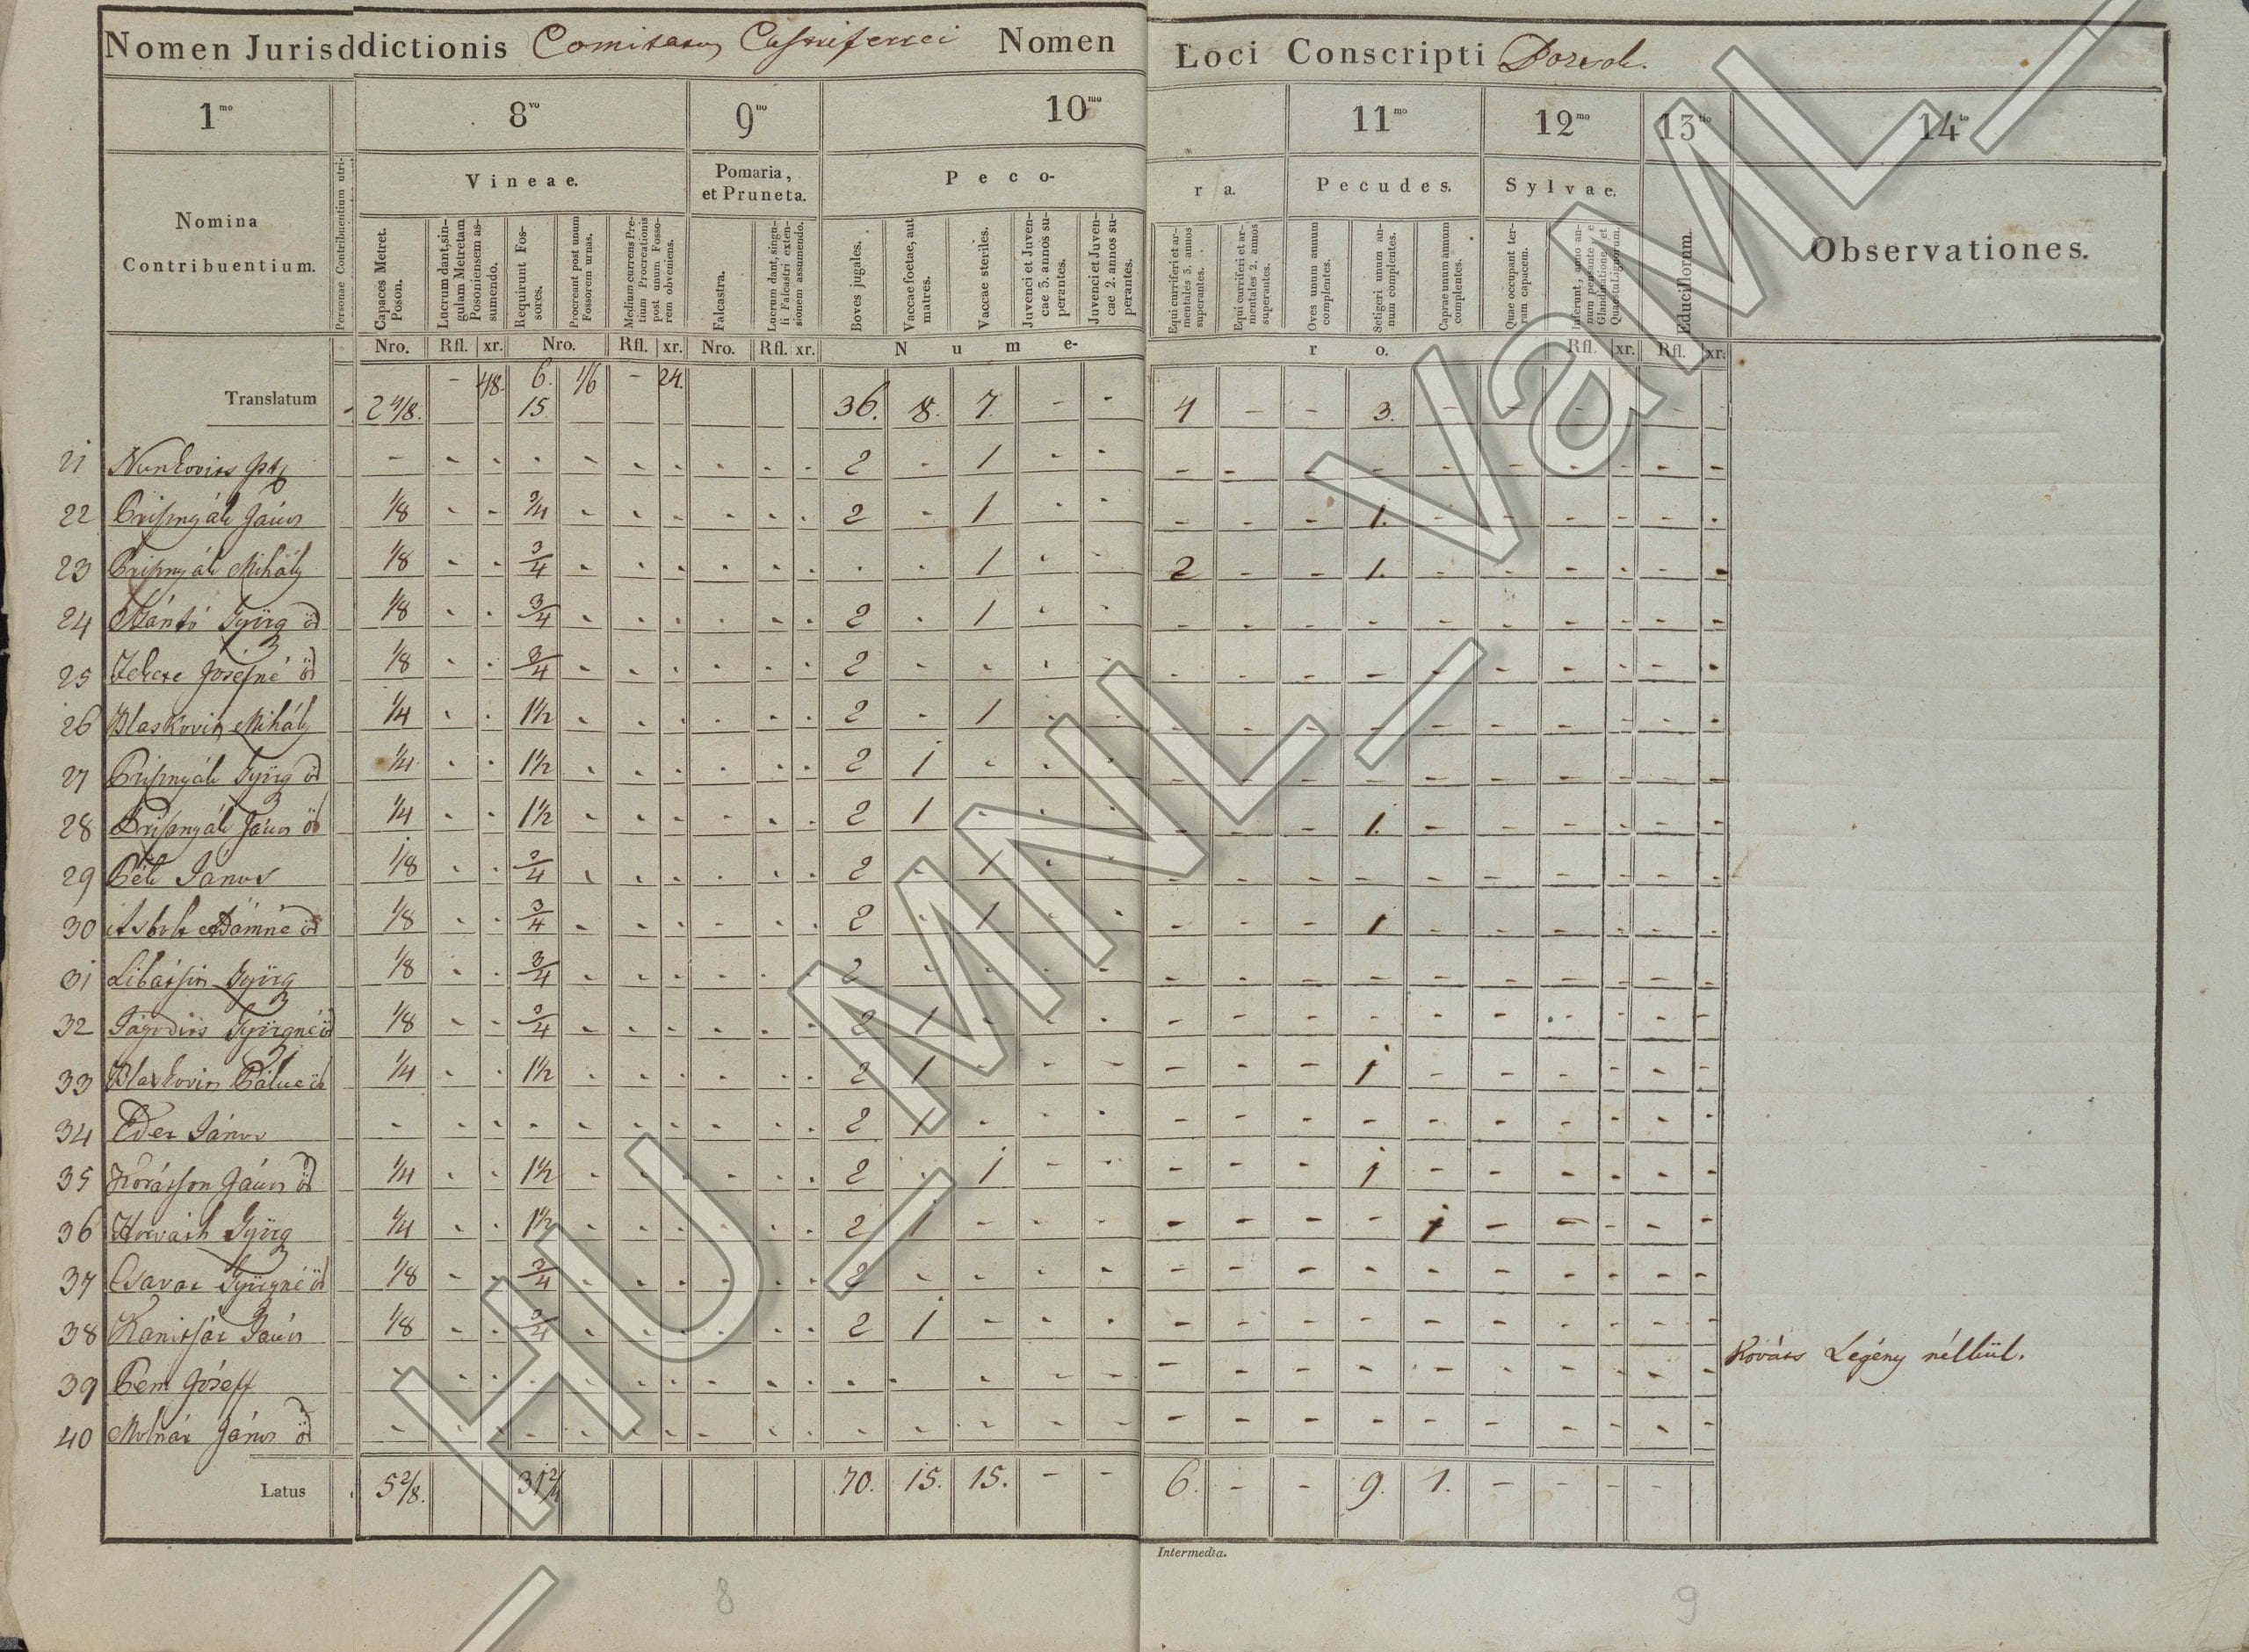 Nomen Jurisddictionis Comitatus Castriferrei Nomen Loci Conscripti
1mo 8vo 9no 10mo 11mo 12mo 13tio 14to
Nomina Contribuentium.
Personae Contribuentium utri-
Vineae.
Pomaria, et Pruneta.
Peco-
ra.
Pecudes.
Sylvae.
Observationes.
Capaces Metret. Poson.
Lucrum dant, sin- gulam Metretam Posoniensem as- sumendo.
Requirunt Fos- sores.
Procreant post unum Fossorem urnas.
Medium currens Pre- tium Procreationis post unum Fosso- rem obveniens.
Falcastra.
Lucrum dant, singu- li Falcastri exten- sionem assumendo.
Boves jugales.
Vaccae foetae, aut matres.
Vaccae steriles.
Juvenci et Juven- cae 3. annos su- perantes.
Juvenci et Juven- cae 2. annos su- perantes.
Equi curriferi et ar- mentales 3. annos superantes.
Equi curriferi et ar- mentales 2. annos superantes.
Oves unum annum complentes.
Setigeri unum an- num complentes.
Caprae unum annum complentes.
Quae occupant ter- ram capacem.
Inferunt, anno an- num pensante, e Glandinatione, et Quaestu Lignorum.
Educillorum.
Nro. Rfl. xr. Nro. Rfl. xr. Nro. Rfl. xr. Nume- ro. Rfl. xr. Rfl. xr.
- 48. 6. 1/6 - 24.
Translatum 2 4/8. 15. 36. 8. 7. - - 4 - - 3. - - - - -
21 - - - - - - - - - - 2 - 1 - - - - - - - - - - - -
22 János 1/8 - - 3/4 - - - - - - 2 - 1 - - - - - 1. - - - - - -
23 Mihály 1/8 - - 3/4 - - - - - - - - 1 - - 2 - - 1. - - - - - -
24 Szántó György öd 1/8 - - 3/4 - - - - - - 2 - 1 - - - - - - - - - - - -
25 Josefné öd 1/8 - - 3/4 - - - - - - 2 - - - - - - - - - - - - - -
26 Blaskovits Mihály 1/4 - - 1 1/2 - - - - - - 2 - 1 - - - - - - - - - - - -
27 György öd 1/4 - - 1 1/2 - - - - - - 2 1 - - - - - - - - - - - - -
28 János öd 1/4 - - 1 1/2 - - - - - - 2 1 - - - - - - 1. - - - - - -
29 János 1/8 - - 3/4 - - - - - - 2 - 1 - - - - - - - - - - - -
30 Ádámné öd 1/8 - - 3/4 - - - - - - 2 - 1 - - - - - 1 - - - - - -
31 György 1/8 - - 3/4 - - - - - - 2 - - - - - - - - - - - - - -
32 Györgyné öd 1/8 - - 3/4 - - - - - - 2 1 - - - - - - - - - - - - -
33 Blaskovits Pálné öd 1/4 - - 1 1/2 - - - - - - 2 1 - - - - - - 1 - - - - - -
34 Eder János - - - - - - - - - - 2 1 - - - - - - - - - - - - -
35 János öd 1/4 - - 1 1/2 - - - - - - 2 - 1 - - - - - 1 - - - - - -
36 Horváth György 1/4 - - 1 1/2 - - - - - - 2 1 - - - - - - - 1 - - - - -
37 Csavar Györgyné öd 1/8 - - 3/4 - - - - - - 2 - - - - - - - - - - - - - -
38 Kanitsár János 1/8 - - 3/4 - - - - - - 2 1 - - - - - - - - - - - - -
39 Pem Jóseff - - - - - - - - - - - - - - - - - - - - - - - - - Kováts Legény nélkül.
40 Molnár János öd - - - - - - - - - - - - - - - - - - - - - - - - -
Latus 5 2/8. 31 2/4 70. 15. 15. - - 6. - - 9. 1. - - - -
Intermedia.
8
9
HU_MNL_VaML_